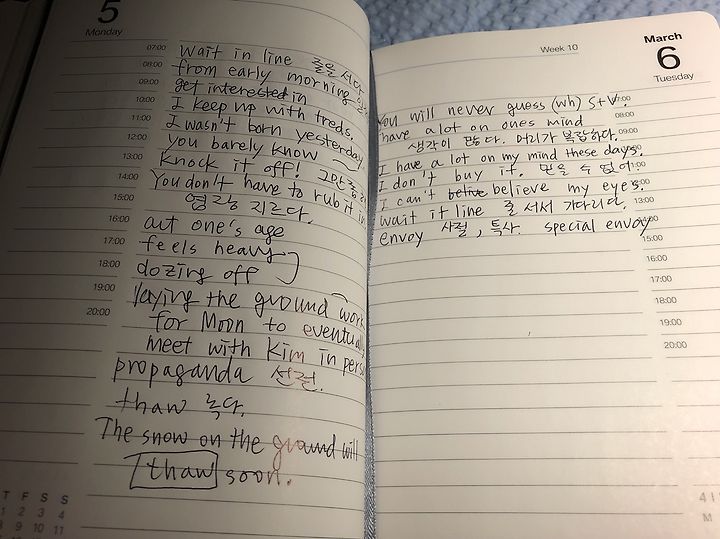 5
Monday
07:00
08:00
09:00
10:00
11:00
12:00
13:00
14:00
15:00
16:00
17:00
18:00
19:00
20:00
wait in line 줄을 서다
from early morning
get interested in
I keep up with treds.
I wasn't born yesterday
you barely know
Knock it off! 그만둬
You don't have to rub it in
염장 지르다.
act one's age
feels heavy
dozing off
laying the ground work
for Moon to eventually
meet with Kim in perso
propaganda 선전.
thaw 녹다.
The snow on the ground will
thaw soon.
T F S S
1 2 3 4
8 9 10 11
Week 10
March
6
Tuesday
07:00
08:00
09:00
13:00
15:00
16:00
17:00
18:00
19:00
20:00
You will never guess (wh) S+V.
have a lot on ones mind
생각이 많다. 머리가 복잡하다.
I have a lot on my mind these days.
I don't buy it. 믿을 수 없어
I can't belive believe my eyes.
wait it line 줄 서서 기다리다.
envoy 사절, 특사. special envoy
M